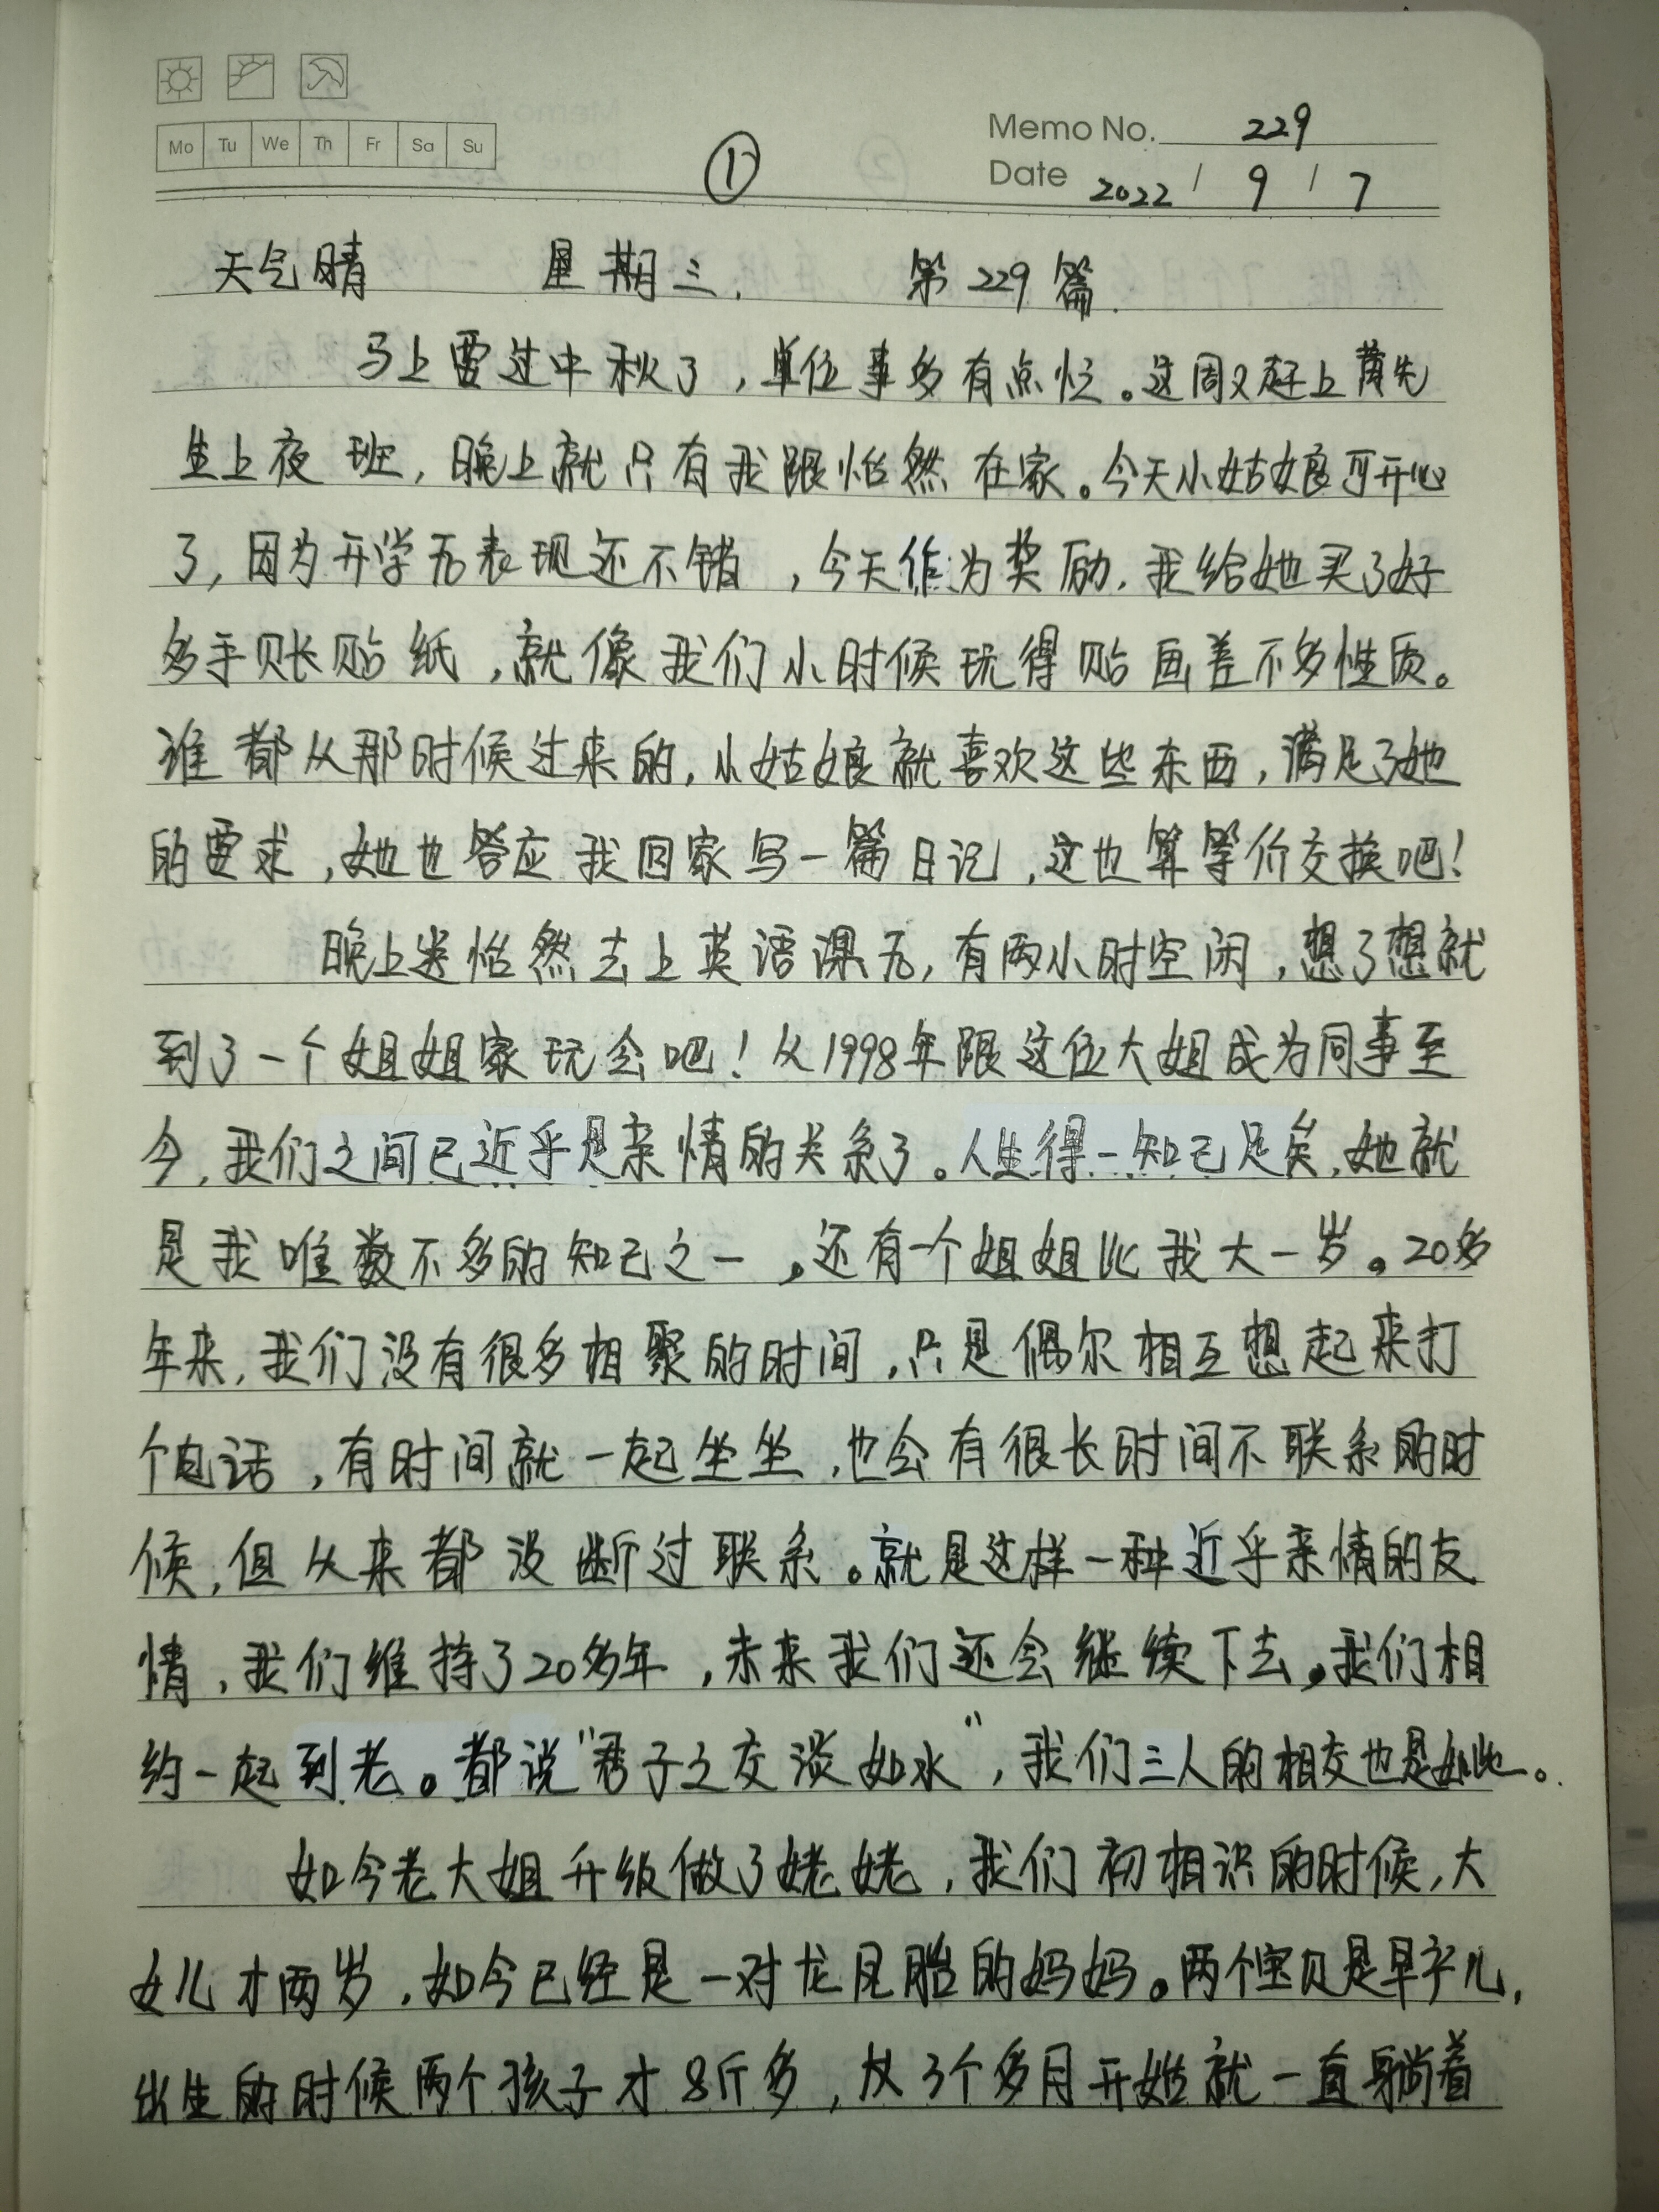 Mo Tu We Th Fr Sa Su
①
Memo No. 229
Date 2022 / 9 / 7
天气晴 星期三. 第229篇.
马上要过中秋了，单位事多有点忙。这周又赶上黄先
生上夜班，晚上就只有我跟怡然在家。今天小姑娘可开心
了，因为开学后表现还不错，今天作为奖励，我给她买了好
多手账贴纸，就像我们小时候玩得贴画差不多性质。
谁都从那时候过来的，小姑娘就喜欢这些东西，满足了她
的要求，她也答应我回家写一篇日记，这也算等价交换吧！
晚上送怡然去上英语课后，有两小时空闲，想了想就
到了一个姐姐家玩会吧！从1998年跟这位大姐成为同事至
今，我们之间已近乎是亲情的关系了。人生得一知己足矣，她就
是我唯数不多的知己之一，还有一个姐姐比我大一岁。20多
年来，我们没有很多相聚的时间，只是偶尔相互想起来打
个电话，有时间就一起坐坐，也会有很长时间不联系的时
候，但从来都没断过联系。就是这样一种近乎亲情的友
情，我们维持了20多年，未来我们还会继续下去，我们相
约一起到老。都说“君子之交淡如水”，我们三人的相交也是如此。
如今老大姐升级做了姥姥，我们初相识的时候，大
女儿才两岁，如今已经是一对龙凤胎的妈妈。两个宝贝是早产儿，
出生的时候两个孩子才8斤多，从3个多月开始就一直躺着